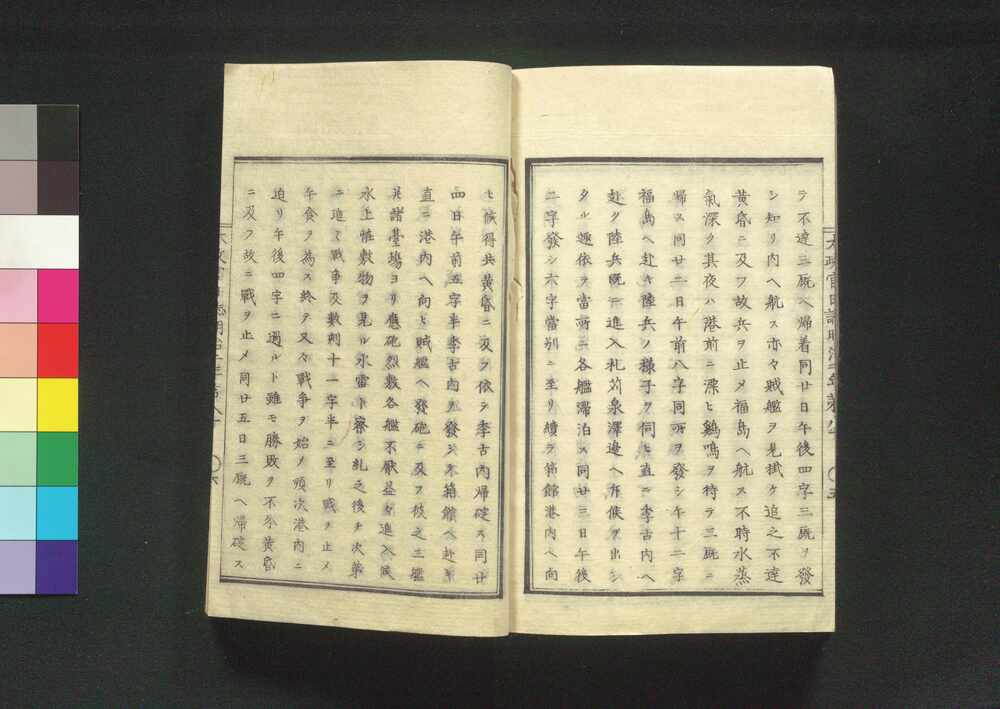 ラ不達三厩ヘ帰着同廿日午後四字三厩ヲ發
シ知リ内ヘ航ス亦々賊艦ヲ見掛ケ追之不達
黄昏ニ及フ故兵ヲ止メ福島ヘ航ス不時水蒸
氣深ク其夜ハ港前ニ漂ヒ鷄鳴ヲ待テ三厩ニ
帰ス同廿二日午前八字同所ヲ發シ午十二字
福島ヘ赴キ陸兵ノ様子ヲ伺ヒ直ニ李古内ヘ
赴ク陸兵既ニ進入札苅泉澤邊ヘ斥候ヲ出シ
タル趣依ヲ當所ニ各艦滞泊ス同廿三日午後
二字發シ六字當別ニ至リ續テ箱館港内ヘ向
ヒ候得共黄昏ニ及フ依テ李古内帰碇ス同廿
四日午前五字半李古内ヲ發シ又箱館ヘ赴キ
直ニ港内ヘ向ヒ賊艦ヘ發砲ニ及フ彼之三艦
其諸臺場ヨリ應砲烈敷各艦不厭益々進入候
水上怪敷物ヲ見ル水雷ト察シ糺之後チ次第
ニ進テ戦争及数刻十一字半ニ至リ戦ヲ止メ
午食ヲ為ス終テ又々戦争ヲ始メ順次港内ニ
迫リ午後四字ニ過ルト雖モ勝敗ヲ不分黄昏
ニ及フ故ニ戦ヲ止メ同廿五日三厩ヘ帰碇ス